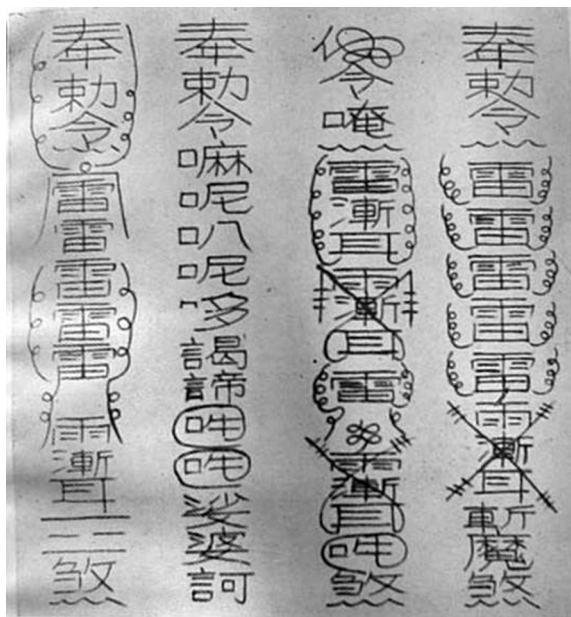 奉勅令雷雷雷雷雷雨漸耳斬魔煞
令唵雷漸耳雨漸耳雷雨漸耳吽煞
奉勅令嘛呢叭呢哆謁諦吽吽娑婆訶
奉勅令雷雷雷雷雷雨漸耳煞